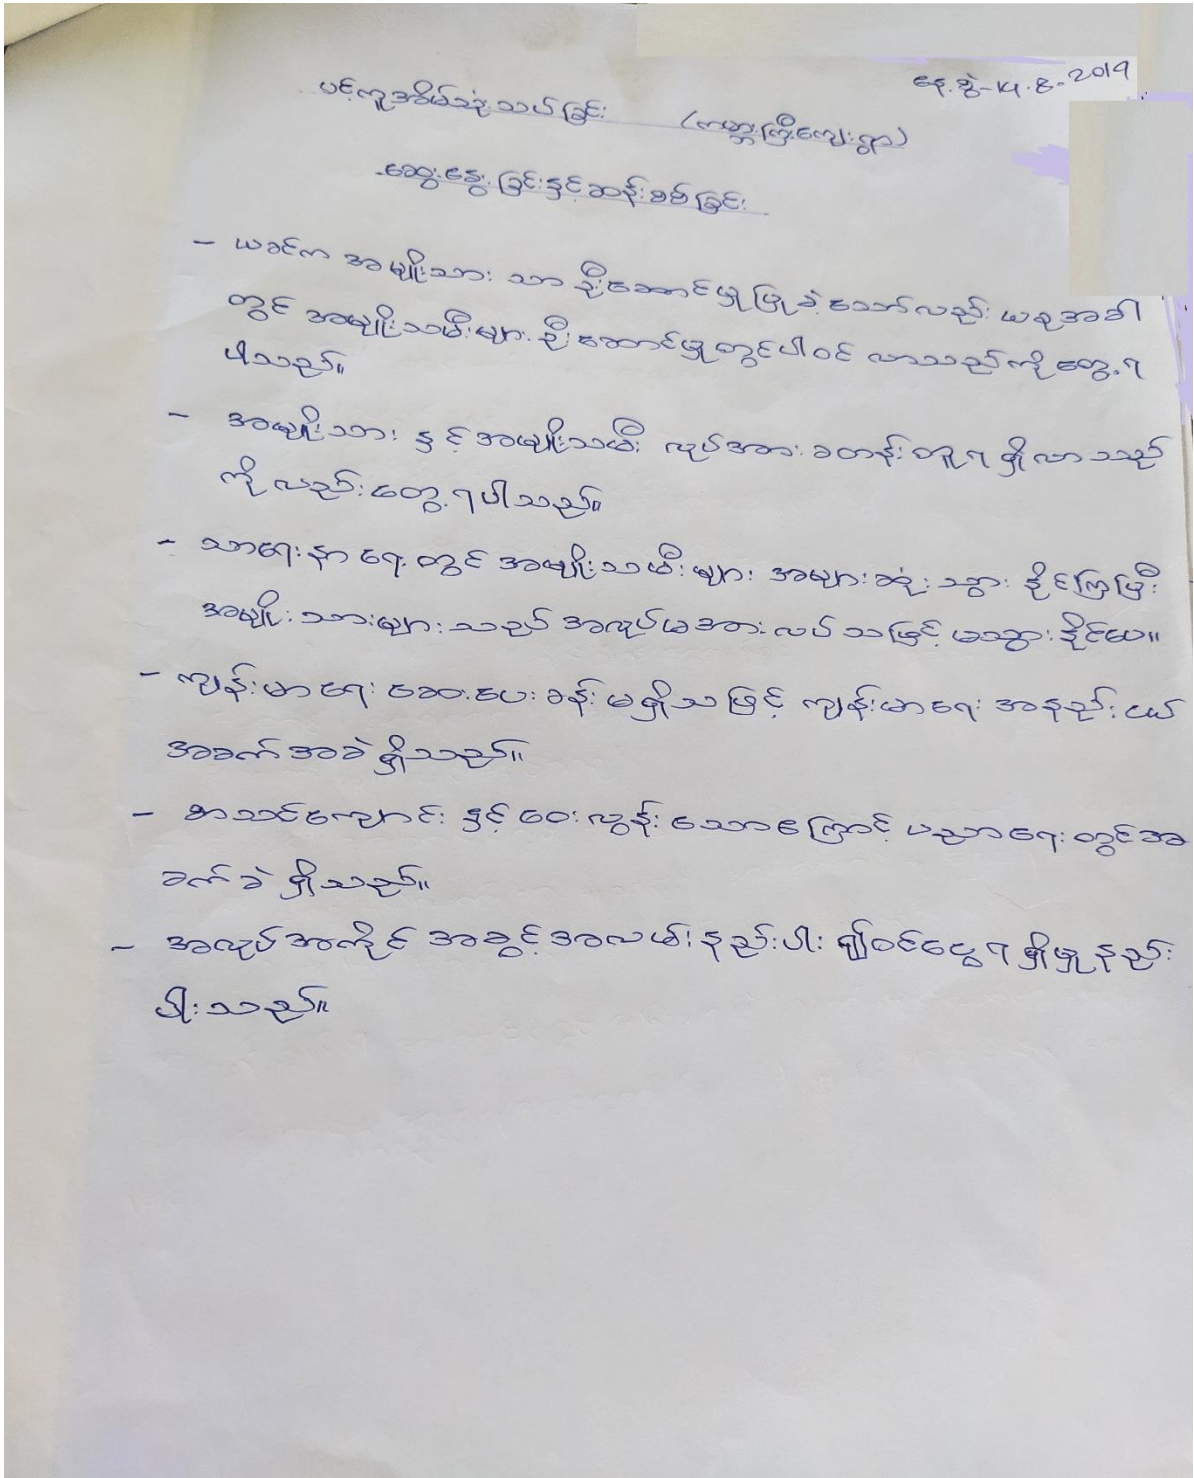 နေ့.စွဲ-14.8-2019
ပင့်ကူအိမ်သုံးသပ်ခြင်း (ကဏ္ဏကြီးကျေးရွာ)
ဆွေးနွေးခြင်းနှင့်ဆန်းစစ်ခြင်း
- ယခင်က အမျိုးသား သာ ဦးဆောင်မှုပြုခဲ့သော်လည်း ယခုအခါ
တွင် အမျိုးသမီးများ ဦးဆောင်မှုတွင်ပါဝင် လာသည်ကိုတွေ့ရ
ပါသည်။
- အမျိုးသား နှင့်အမျိုးသမီး လုပ်အားခတန်းတူရရှိလာသည်
ကိုလည်းတွေ့ရပါသည်။
- သာရေးနာရေးတွင် အမျိုးသမီးများ အများဆုံးသွားနိုင်ကြပြီး
အမျိုးသားများသည် အလုပ်မအားလပ်သဖြင့် မသွားနိုင်ပေ။
- ကျန်းမာရေး ဆေးပေးခန်းမရှိသဖြင့် ကျန်းမာရေး အနည်းငယ်
အခက်အခဲရှိသည်။
- စာသင်ကျောင်း နှင့်ဝေးလွန်းသောကြောင့် ပညာရေးတွင်အ
ခက်ခဲရှိသည်။
- အလုပ်အကိုင် အခွင့်အလမ်းနည်းပါး၍ဝင်ငွေရရှိမှုနည်း
ပါးသည်။